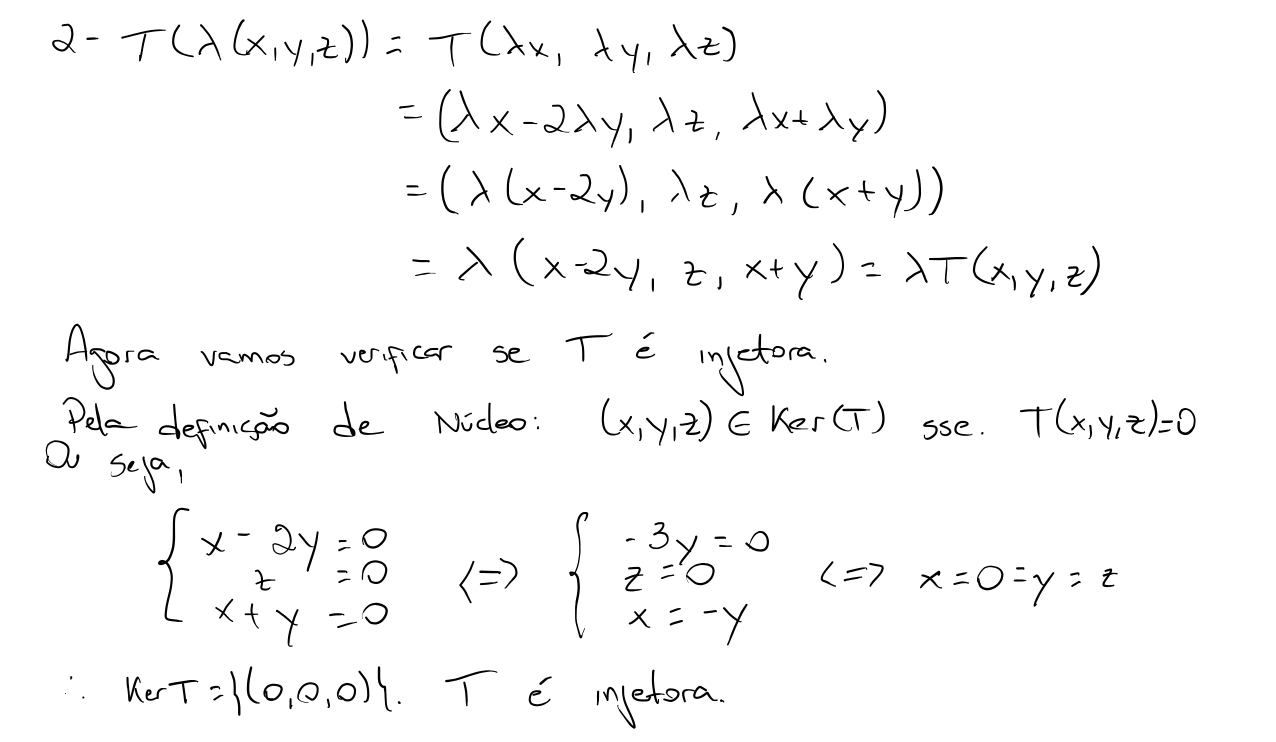 2- T(λ(x,y,z)) = T(λx, λy, λz)
= (λx-2λy, λz, λx+λy)
= (λ(x-2y), λz, λ(x+y))
= λ(x-2y, z, x+y) = λT(x,y,z)
Agora vamos verificar se T é injetora.
Pela definição de Núcleo: (x,y,z) ∈ Ker(T) sse. T(x,y,z)=0
Ou seja,
{ x - 2y = 0 <=> { -3y = 0 <=> x = 0 = y = z
z = 0 z = 0
x + y = 0 x = -y
∴ KerT = {(0,0,0)}. T é injetora.